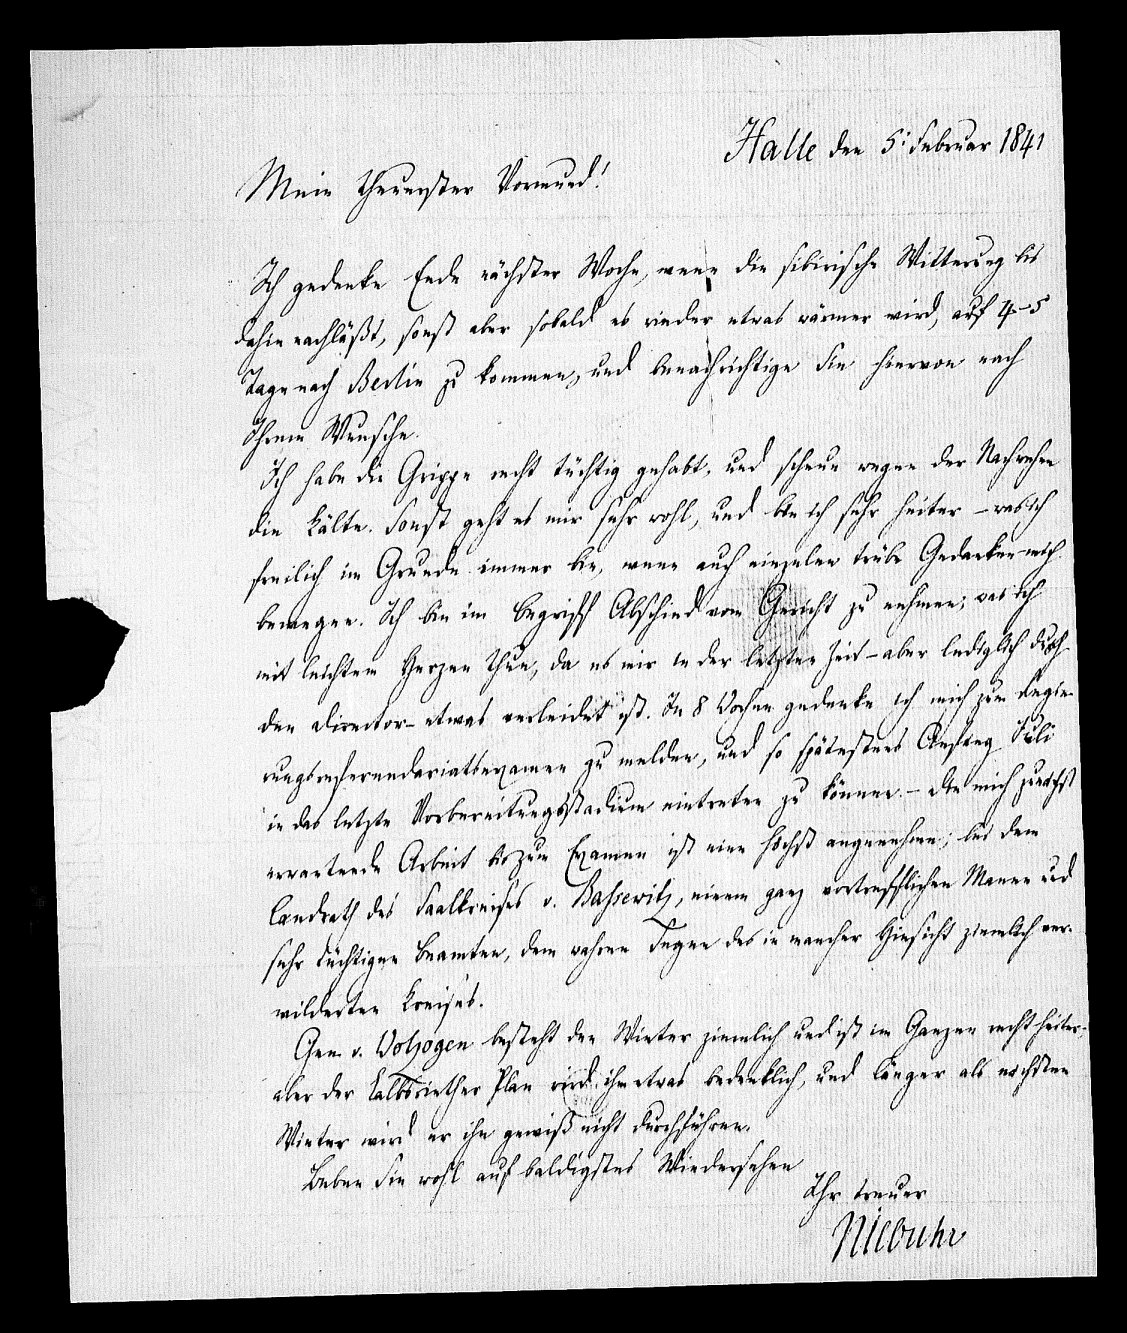 Halle den 5t Februar 1841
Mein theuerster Vormund!
Ich gedenke Ende nächster Woche, wenn die sibirische Witterung bis
dahin nachläßt, sonst aber sobald es wieder etwas wärmer wird, auf 4-5
Tage nach Berlin zu kommen, und benachrichtige Sie hiervon nach
Ihrem Wunsche.
Ich habe die Grippe recht tüchtig gehabt, und scheue wegen der Nachwehen
die Kälte. Sonst geht es mir sehr wohl, und bin ich sehr heiter – was ich
freilich im Grunde immer bin, wenn auch einzelne trübe Gedanken mich
bewegen. Ich bin im Begriff Abschied vom Gericht zu nehmen; was ich
mit leichtem Herzen thue, da es mir in der letzten Zeit – aber lediglich durch
den Director – etwas verleidet ist. In 8 Wochen gedenke ich mich zum Regie-
rungsreferendariatsexamen zu melden, und so spätestens Anfang Juli
in das letzte Vorbereitungsstadium eintreten zu können. – Die mich zunächst
erwartende Arbeit bis zum Examen ist eine höchst angenehme; bei dem
Landrath des Saalkreises v. Bassewitz, einem ganz vortrefflichen Manne und
sehr tüchtigen Beamten, dem wahren Segen des in mancher Hinsicht ziemlich ver-
wilderten Kreises.
Gen. v. Wolzogen besteht den Winter ziemlich und ist im Ganzen recht heiter,
aber der Kalbsriether Plan wird ihm etwas bedenklich, und länger als nächsten
Winter wird er ihn gewiß nicht durchführen.
Leben Sie wohl auf baldigstes Wiedersehen
Ihr treuer
Niebuhr